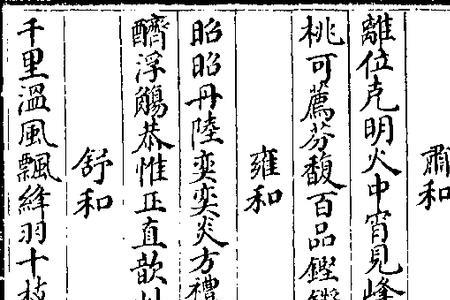 肅和
離位克明火中宵見峰
桃可薦芬馥百品鏗
雍和
昭昭丹陸奕奕炎方禮
醑浮觴恭惟正直歆
舒和
千里溫風飄絳羽十枝